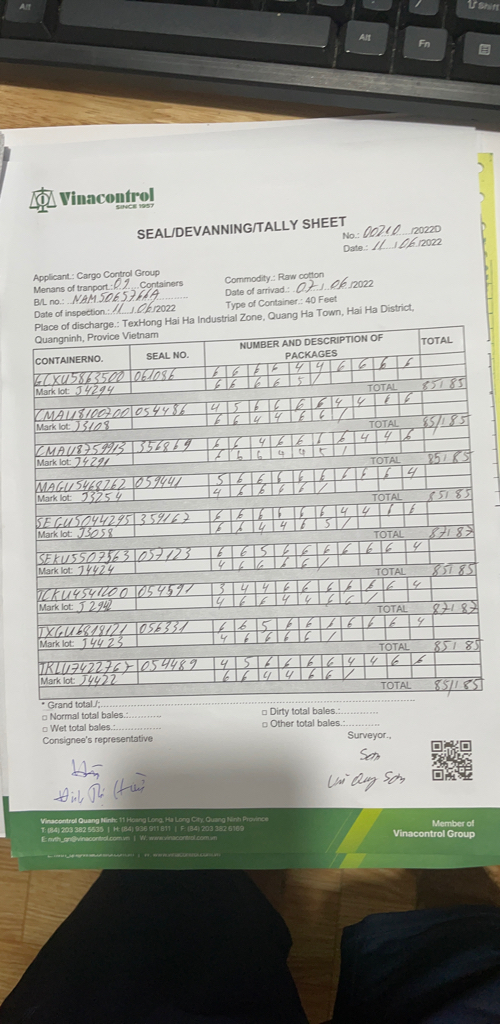 Alt
Alt
Fn
Shift
Vinacontrol
SINCE 1957
SEAL/DEVANNING/TALLY SHEET
No.: 00210 /2022D
Date.: 11 / 06/2022
Applicant.: Cargo Control Group
Commodity.: Raw cotton
Menans of tranport.: 09 Containers
Date of arrivad.: 07 / 06 /2022
B/L no.: NAM5065766A
Type of Container.: 40 Feet
Date of inspection.: 11 / 06/2022
Place of discharge.: TexHong Hai Ha Industrial Zone, Quang Ha Town, Hai Ha District,
Quangninh, Provice Vietnam
CONTAINERNO. SEAL NO. NUMBER AND DESCRIPTION OF PACKAGES TOTAL
GCXU5863500 061086 6 6 6 6 4 4 6 6 6 6
6 6 6 6 5 /
Mark lot: J4294 TOTAL 85/85
CMAU8100700 054486 4 5 6 6 6 6 4 4 6 6
6 6 4 4 6 6 /
Mark lot: J3108 TOTAL 85/85
CMAU8759913 356869 6 6 4 6 6 6 6 4 4 6
6 6 6 4 4 5 /
Mark lot: J4291 TOTAL 85/85
MAGU5468762 059441 5 6 6 6 6 6 6 6 6 4
4 6 6 6 6 /
Mark lot: J3254 TOTAL 85/85
SEGU5044295 359167 6 6 6 6 6 6 4 4 6 6
6 6 4 4 6 5 /
Mark lot: J3058 TOTAL 87/87
SEKU5507563 057123 6 6 5 6 6 6 6 6 6 4
4 6 6 6 6 /
Mark lot: J4424 TOTAL 85/85
TCKU4541200 054591 3 4 4 6 6 6 6 6 6 4
4 6 6 4 4 6 6 /
Mark lot: TOTAL 87/87
TXGU6818121 056331 6 6 5 6 6 6 6 6 6 4
4 6 6 6 6 /
Mark lot: J4423 TOTAL 85/85
TKLU7422767 054489 4 5 6 6 6 6 4 4 6 6
6 6 4 4 6 6 /
Mark lot: J4422 TOTAL 85/85
* Grand total./;
□ Normal total bales.: □ Dirty total bales.:
□ Wet total bales.: □ Other total bales.:
Consignee's representative Surveyor.,
Sơn
Vinacontrol Quang Ninh: 11 Hoang Long, Ha Long City, Quang Ninh Province
T: (84) 203 382 5535 | H: (84) 936 911 811 | F: (84) 203 382 6169
E: nvth_qn@vinacontrol.com.vn | W: www.vinacontrol.com.vn
Member of
Vinacontrol Group